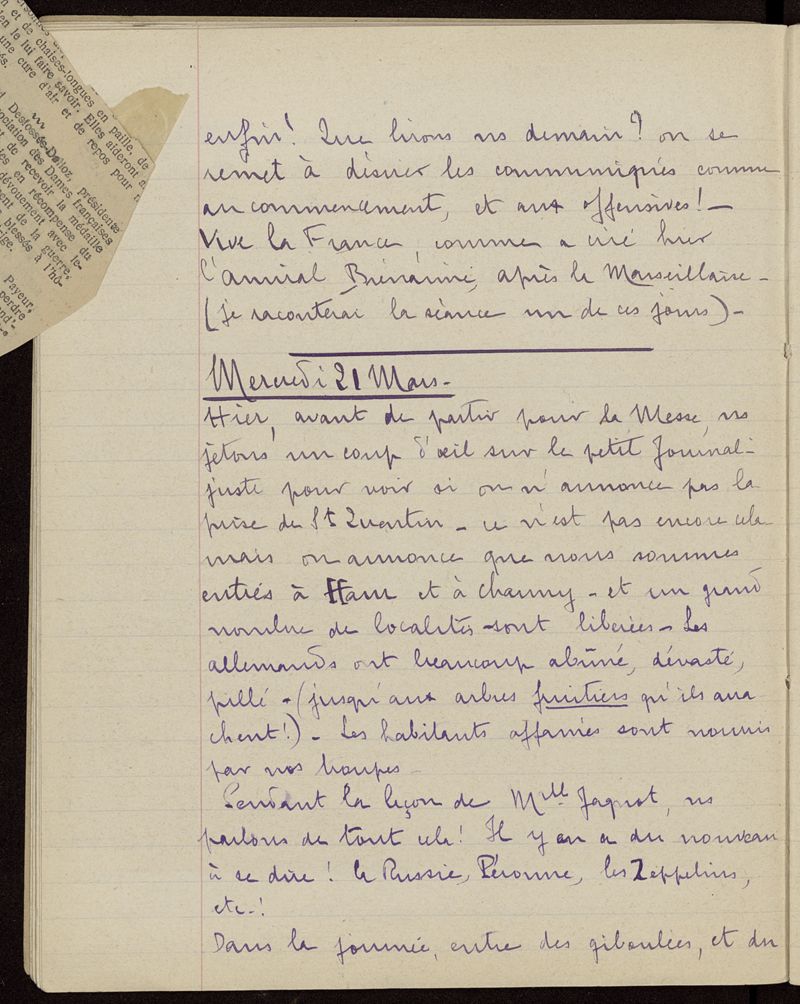 en et de chaises-longues en paille, de
en le lui faire savoir. Elles aideront a
une cure d'air et de repos pour
Desfossés-Dalloz, présidente
ociation des Dames françaises
de recevoir la médaille
en récompense du
dévouement avec le-
de la guerre,
blessés à l'hô-
Payeur,
perdre
enfin! Que lirons ns demain? on se
remet à désirer les communiqués comme
au commencement, et aux offensives! -
Vive la France comme a crié hier
l'amiral Bienaimé, après la Marseillaise -
(je raconterai la séance un de ces jours) -
Mercredi 21 Mars -
Hier, avant de partir pour la Messe, ns
jetons un coup d'œil sur le petit Journal -
juste pour voir si on n'annonce pas la
prise de St Quentin - ce n'est pas encore cela
mais on annonce que nous sommes
entrés à Ham et à Chauny - et un grand
nombre de localités sont libérées - Les
allemands ont beaucoup abîmé, dévasté,
pillé - (jusqu'aux arbres fruitiers qu'ils arra
chent!) - Les habitants affamés sont nourris
par nos troupes -
Pendant la leçon de Mlle Jaquot, ns
parlons de tout cela! Il y en a du nouveau
à se dire! la Russie, Péronne, les Zeppelins,
etc -!
Dans la journée, entre des giboulées, et du